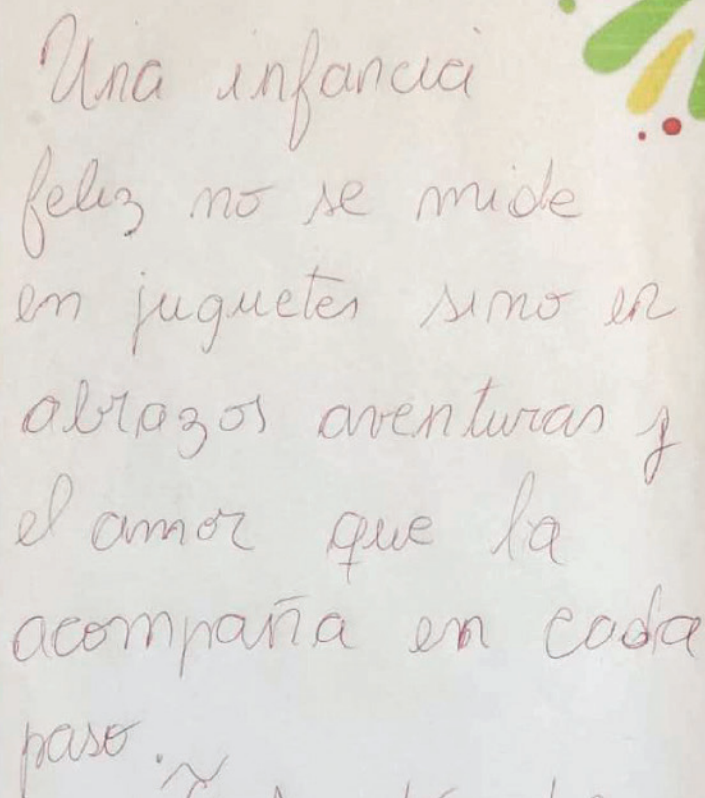 Una infancia
feliz no se mide
en juguetes sino en
abrazos aventuras y
el amor que la
acompaña en cada
paso.